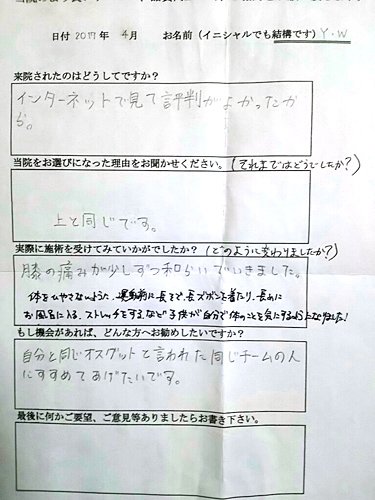 日付 2017 年 4月 お名前（イニシャルでも結構です）Y・W
来院されたのはどうしてですか？
インターネットで見て評判がよかったか
ら。
当院をお選びになった理由をお聞かせください。（それまではどうでしたか？）
上と同じです。
実際に施術を受けてみていかがでしたか？（どのように変わりましたか？）
膝の痛みが少しずつ和らいでいきました。
体をひやさないよう、運動前に長そで、長ズボンを着たり、長めに
お風呂に入る、ストレッチをする、など子供が自分で体のことを気にするようになりました！
もし機会があれば、どんな方へお勧めしたいですか？
自分と同じオスグットと言われた同じチームの人
にすすめてあげたいです。
最後に何かご要望、ご意見等ありましたらお書き下さい。